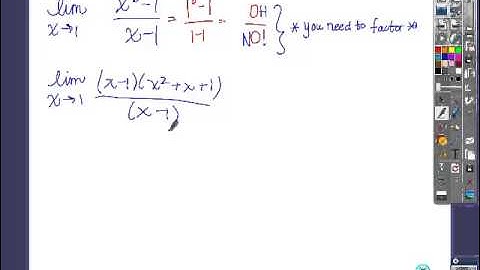 lim x→1 x³-1 / x-1 = 1³-1 / 1-1 = OH NO! } * you need to factor *
lim x→1 (x-1)(x²+x+1) / (x-1)